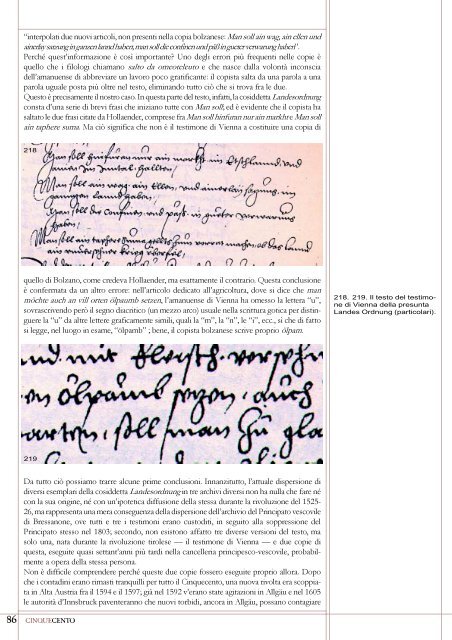 "interpolati due nuovi articoli, non presenti nella copia bolzanese: Man soll ain wag, ain ellen und
ainerlay satzung in ganzen lannd haben, man soll die confinen und päß in gueter verwarung haben".
Perché quest'informazione è così importante? Uno degli errori più frequenti nelle copie è
quello che i filologi chiamano salto da omeoteleuto e che nasce dalla volontà inconscia
dell'amanuense di abbreviare un lavoro poco gratificante: il copista salta da una parola a una
parola uguale posta più oltre nel testo, eliminando tutto ciò che si trova fra le due.
Questo è precisamente il nostro caso. In questa parte del testo, infatti, la cosiddetta Landesordnung
consta d'una serie di brevi frasi che iniziano tutte con Man soll; ed è evidente che il copista ha
saltato le due frasi citate da Hollaender, comprese fra Man soll hinfuran nur ain markht e Man soll
ain taphere suma. Ma ciò significa che non è il testimone di Vienna a costituire una copia di
218
Man soll hinfuran nur ain markht im Etschlannd und
Man soll ain wag, ain Ellen, und ainerlay
ganntzen lannd haben
Man soll die Confinen, und päß, in gueter verwarung
haben
Man soll ain taphere Suma gellts
quello di Bolzano, come credeva Hollaender, ma esattamente il contrario. Questa conclusione
è confermata da un altro errore: nell'articolo dedicato all'agricoltura, dove si dice che man
möchte auch an vill orten ölpaumb setzen, l'amanuense di Vienna ha omesso la lettera "u",
sovrascrivendo però il segno diacritico (un mezzo arco) usuale nella scrittura gotica per distin-
guere la "u" da altre lettere graficamente simili, quali la "m", la "n", le "i", ecc., sì che di fatto
si legge, nel luogo in esame, "ölpamb" ; bene, il copista bolzanese scrive proprio ölpam.
218. 219. Il testo del testimo-
ne di Vienna della presunta
Landes Ordnung (particolari).
und mit
en ölpamb setzen, auch
garten, soll man zu
219
Da tutto ciò possiamo trarre alcune prime conclusioni. Innanzitutto, l'attuale dispersione di
diversi esemplari della cosiddetta Landesordnung in tre archivi diversi non ha nulla che fare né
con la sua origine, né con un'ipotetica diffusione della stessa durante la rivoluzione del 1525-
26, ma rappresenta una mera conseguenza della dispersione dell'archivio del Principato vescovile
di Bressanone, ove tutti e tre i testimoni erano custoditi, in seguito alla soppressione del
Principato stesso nel 1803; secondo, non esistono affatto tre diverse versioni del testo, ma
solo una, nata durante la rivoluzione tirolese — il testimone di Vienna — e due copie di
questa, eseguite quasi settant'anni più tardi nella cancelleria principesco-vescovile, probabil-
mente a opera della stessa persona.
Non è difficile comprendere perché queste due copie fossero eseguite proprio allora. Dopo
che i contadini erano rimasti tranquilli per tutto il Cinquecento, una nuova rivolta era scoppia-
ta in Alta Austria fra il 1594 e il 1597; già nel 1592 v'erano state agitazioni in Allgäu e nel 1605
le autorità d'Innsbruck paventeranno che nuovi torbidi, ancora in Allgäu, possano contagiare
86 CINQUECENTO